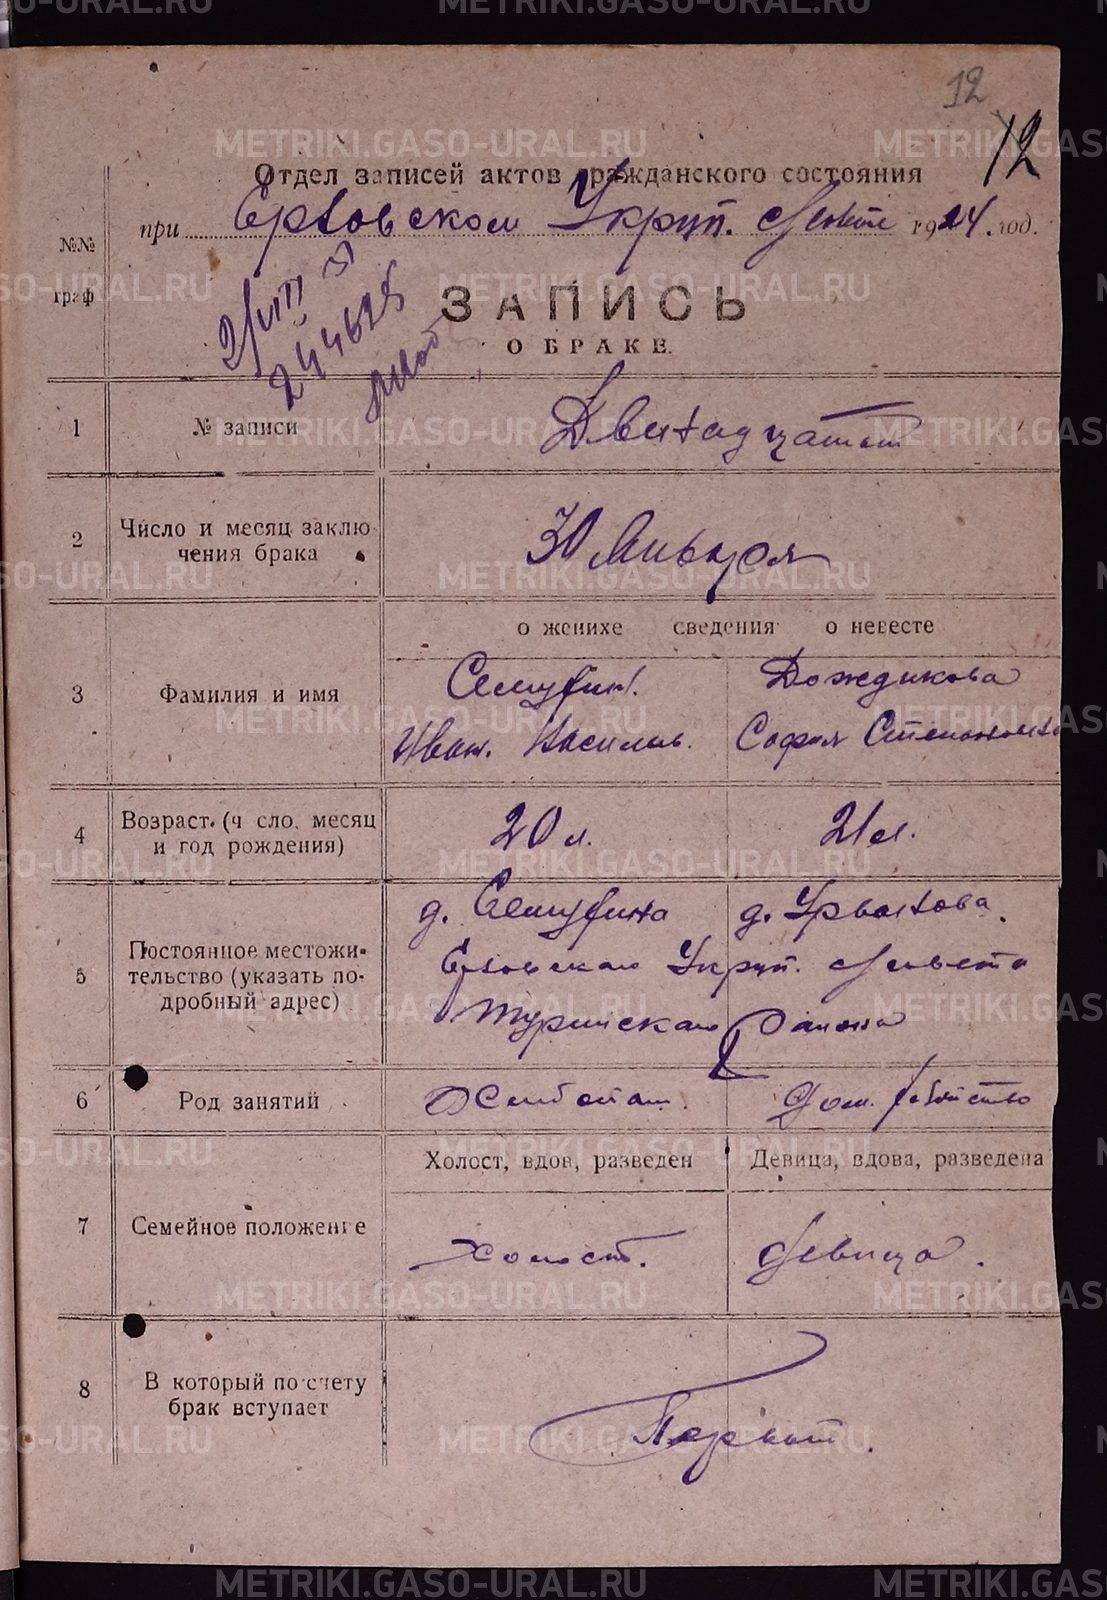 12
12
Отдел записей актов гражданского состояния
при Ерзовском Укруп. Совете 1924 год.
№№ граф
2/VIII 51
244625
ЗАПИСЬ
О БРАКЕ.
1 № записи Двенадцатый
2 Число и месяц заклю-
чения брака 30 Января
о женихе сведения о невесте
3 Фамилия и имя Семухин. Дождикова
Иван. Васильев. Софья Степановна
4 Возраст. (ч сло, месяц
и год рождения) 20 л. 21 л.
5 Постоянное местожи-
тельство (указать по-
дробный адрес)
д. Семухина д. Урванова.
Ерзовскаго Укруп. Совета
Туринскаго района
6 Род занятий Хлебопаш. Дом. хозяйство
Холост, вдов, разведен Девица, вдова, разведена
7 Семейное положение холост. девица.
8 В который по счету
брак вступает Первый.
METRIKI.GASO-URAL.RU